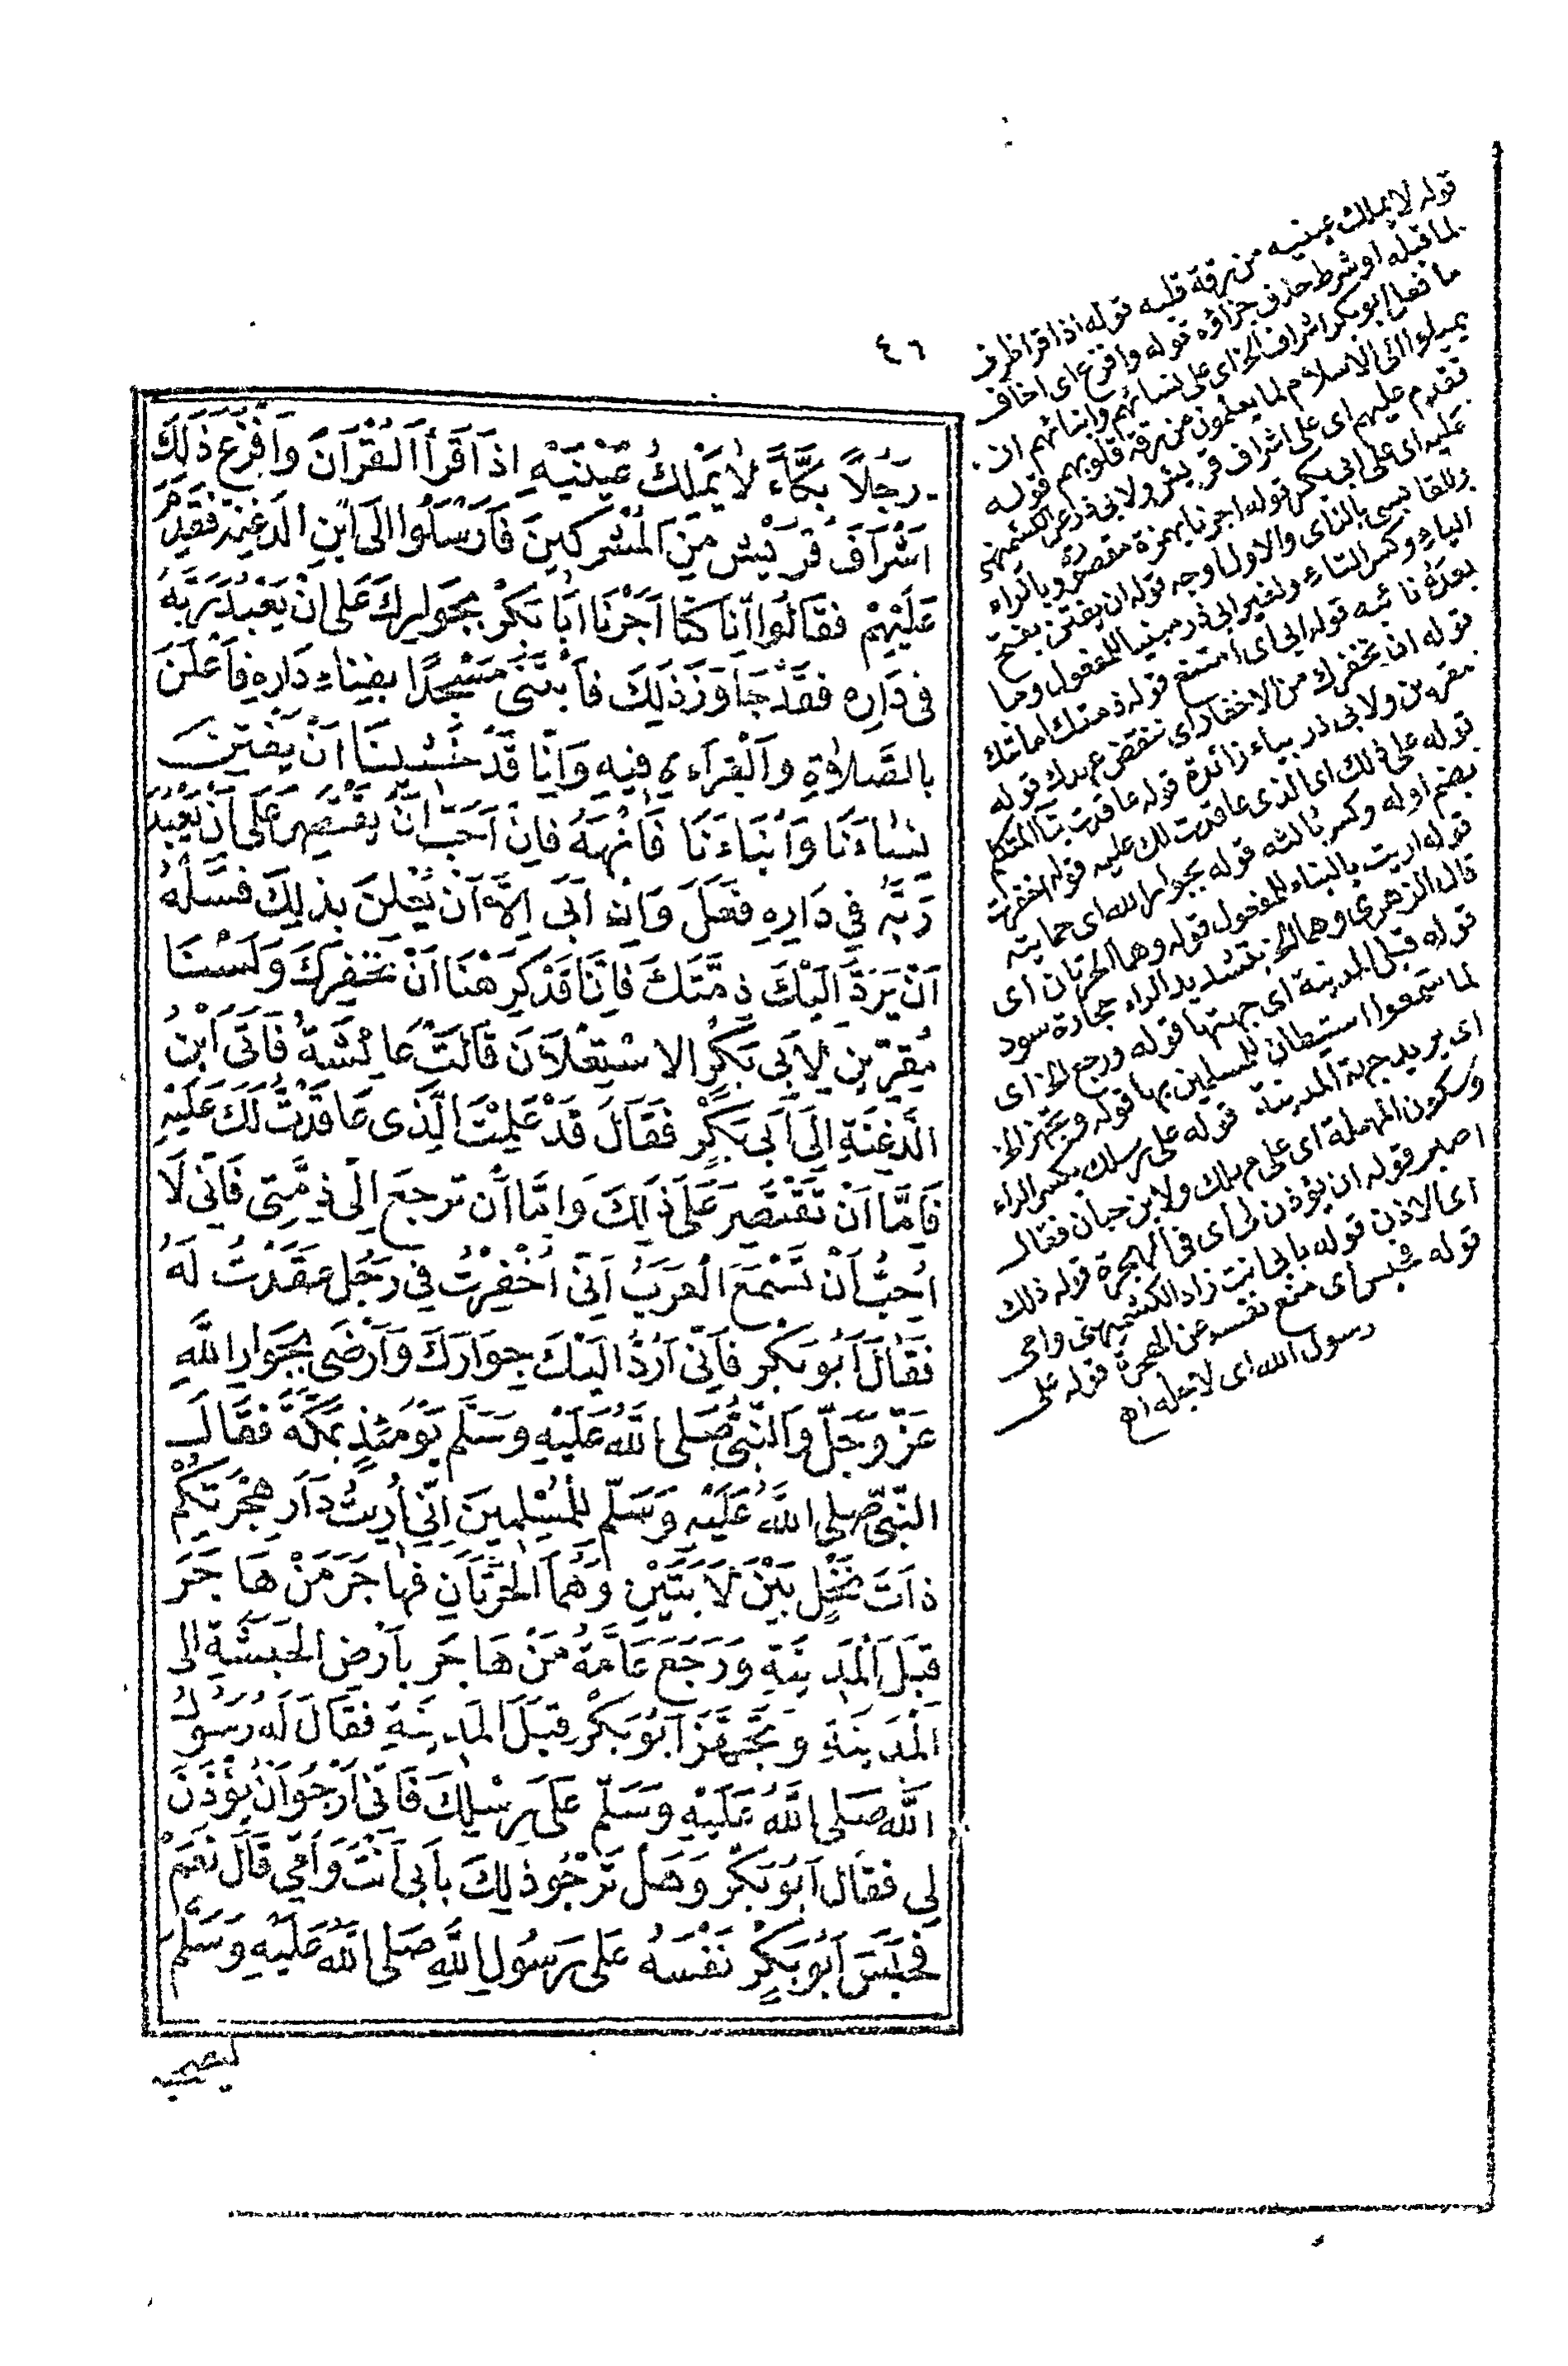 ٤٦
رَجُلاً بَكَّاءً لَا يَمْلِكُ عَيْنَيْهِ اِذَا قَرَأَ الْقُرْآنَ وَاَفْزَعَ ذٰلِكَ
اَشْرَافَ قُرَيْشٍ مِنَ الْمُشْرِكِينَ فَاَرْسَلُوا اِلَى ابْنِ الدَّغِنَةِ فَقَدِمَ
عَلَيْهِمْ فَقَالُوا اِنَّا كُنَّا اَجَرْنَا اَبَا بَكْرٍ بِجِوَارِكَ عَلَى اَنْ يَعْبُدَ رَبَّهُ
فِى دَارِهِ فَقَدْ جَاوَزَ ذٰلِكَ فَابْتَنَى مَسْجِدًا بِفِنَاءِ دَارِهِ فَاَعْلَنَ
بِالصَّلَاةِ وَالْقِرَاءَةِ فِيهِ وَاِنَّا قَدْ خَشِينَا اَنْ يَفْتِنَ
نِسَاءَنَا وَاَبْنَاءَنَا فَانْهَهُ فَاِنْ اَحَبَّ اَنْ يَقْتَصِرَ عَلَى اَنْ يَعْبُدَ
رَبَّهُ فِي دَارِهِ فَعَلَ وَاِنْ اَبَى اِلَّا اَنْ يُعْلِنَ بِذٰلِكَ فَسَلْهُ
اَنْ يَرُدَّ اِلَيْكَ ذِمَّتَكَ فَاِنَّا قَدْ كَرِهْنَا اَنْ نُخْفِرَكَ وَلَسْنَا
مُقِرِّينَ لِاَبِى بَكْرٍ الاِسْتِعْلَانَ قَالَتْ عَائِشَةُ فَاَتَى ابْنُ
الدَّغِنَةِ اِلَى اَبِى بَكْرٍ فَقَالَ قَدْ عَلِمْتَ الَّذِى عَاقَدْتُ لَكَ عَلَيْهِ
فَاِمَّا اَنْ تَقْتَصِرَ عَلَى ذٰلِكَ وَاِمَّا اَنْ تَرْجِعَ اِلَىَّ ذِمَّتِى فَاِنِّى لَا
اُحِبُّ اَنْ تَسْمَعَ الْعَرَبُ اَنِّى اُخْفِرْتُ فِى رَجُلٍ عَقَدْتُ لَهُ
فَقَالَ اَبُو بَكْرٍ فَاِنِّى اَرُدُّ اِلَيْكَ جِوَارَكَ وَاَرْضَى بِجِوَارِ اللّٰهِ
عَزَّ وَجَلَّ وَالنَّبِىُّ صَلَّى اللّٰهُ عَلَيْهِ وَسَلَّمَ يَوْمَئِذٍ بِمَكَّةَ فَقَالَ
النَّبِىُّ صَلَّى اللّٰهُ عَلَيْهِ وَسَلَّمَ لِلْمُسْلِمِينَ اِنِّى اُرِيتُ دَارَ هِجْرَتِكُمْ
ذَاتَ نَخْلٍ بَيْنَ لَابَتَيْنِ وَهُمَا الْحَرَّتَانِ فَهَاجَرَ مَنْ هَاجَرَ
قِبَلَ الْمَدِينَةِ وَرَجَعَ عَامَّةُ مَنْ هَاجَرَ بِاَرْضِ الْحَبَشَةِ اِلَى
الْمَدِينَةِ وَتَجَهَّزَ اَبُو بَكْرٍ قِبَلَ الْمَدِينَةِ فَقَالَ لَهُ رَسُولُ
اللّٰهِ صَلَّى اللّٰهُ عَلَيْهِ وَسَلَّمَ عَلَى رِسْلِكَ فَاِنِّى اَرْجُو اَنْ يُؤْذَنَ
لِى فَقَالَ اَبُو بَكْرٍ وَهَلْ تَرْجُو ذٰلِكَ بِاَبِى اَنْتَ وَاُمِّى قَالَ نَعَمْ
فَحَبَسَ اَبُو بَكْرٍ نَفْسَهُ عَلَى رَسُولِ اللّٰهِ صَلَّى اللّٰهُ عَلَيْهِ وَسَلَّمَ
ليصحبه
قوله لا يملك عينيه من رقة قلبه قوله اذا قرا ظرف
لما قبله او شرط حذف جزاؤه قوله وافزع اى اخاف
ما فعل ابو بكر اشراف الخ اى على نسائهم وابنائهم ان
يميلوا الى الاسلام لما يعلمون من رقة قلوبهم قوله
فقدم عليهم اى على اشراف قريش ولابى ذر عن الكشميهنى
عليه اى على ابى بكر قوله اجرنا بهمزة مقصورة وبالراء
وللقابسى بالزاى والاول اوجه قوله ان يفتن بفتح
الياء وكسر التاء ولغير ابى ذر مبنيا للمفعول وما
بعده نائبه قوله ابى اى امتنع قوله ذمتك امانتك
قوله ان نخفرك من الاخفار اى ننقض عهدك قوله
مقرين ولابى ذر بياء زائدة قوله عاقدت بتا المتكلم
قوله على ذلك اى الذى عاقدت لك عليه قوله اخفرت
بضم اوله وكسر ثالثه قوله بجوار الله اى حمايته
قوله اريت بالبناء للمفعول قوله وهما الحرتان اى
قال الزهرى وهما الخ بتشديد الراء حجارة سود
قوله قبل المدينة اى جهتها قوله ورجع الخ اى
لما سمعوا استيطان المسلمين بها قوله وتجهز الخ
اى يريد جهة المدينة قوله على رسلك بكسر الراء
وسكون المهملة اى على مهلك ولابن حبان فقال
اصبر قوله ان يؤذن لى اى فى الهجرة قوله ذلك
اى الاذن قوله بابى انت زاد الكشميهنى وامى
قوله فحبس اى منع نفسه عن الهجرة قوله على
رسول الله اى لاجله اه